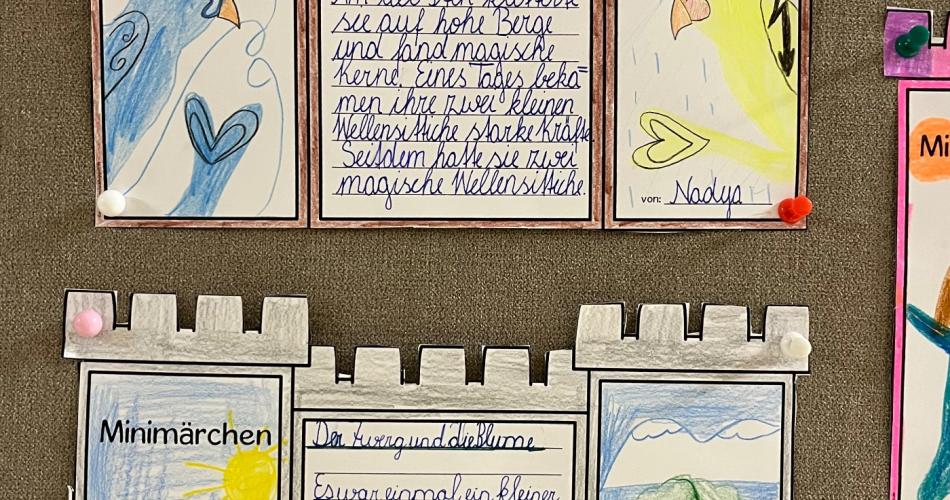 sie auf hohe Berge
und fand magische
Kerne. Eines Tages beka=
men ihre zwei kleinen
Wellensittiche starke Kräfte
Seitdem hatte sie zwei
magische Wellensittiche.
von: Nadya
Mi
Minimärchen
Der Zwerg und die Blume
Es war einmal ein kleiner